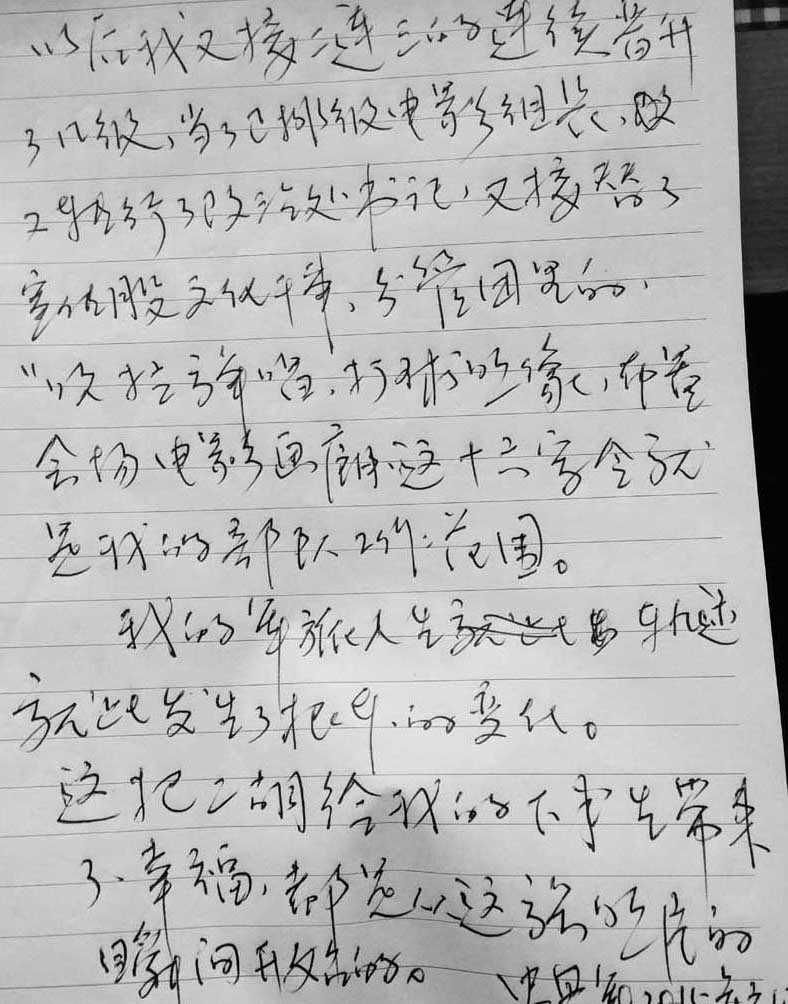 以后我又接二连三的连续普升
了几级,当了正排级电影组长,
又转行了政治处书记,又接替了
宣传股文化干事,分管团里的,
"吹拉弹唱,打球照像,布置
会场电影画廊"这十六字令就
是我的部队工作范围。
我的军旅人生轨迹
就此发生了根本的变化。
这把二胡给我的下半生带来
了幸福,都是从这张照片的
瞬间开始的。